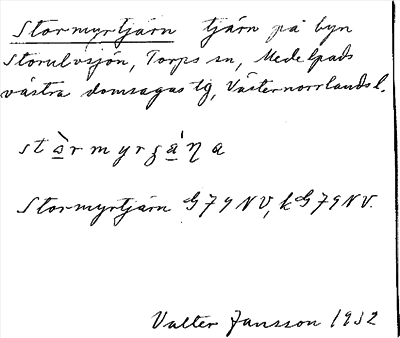 Stormyrtjärn tjärn på byn
Storulvsjön, Torps sn, Medelpads
västra domsagas tg, Västernorrlands l.
stò̱rmyrʒá̱ηa
Stormyrtjärn G79NV, kG79NV.
Valter Jansson 1932